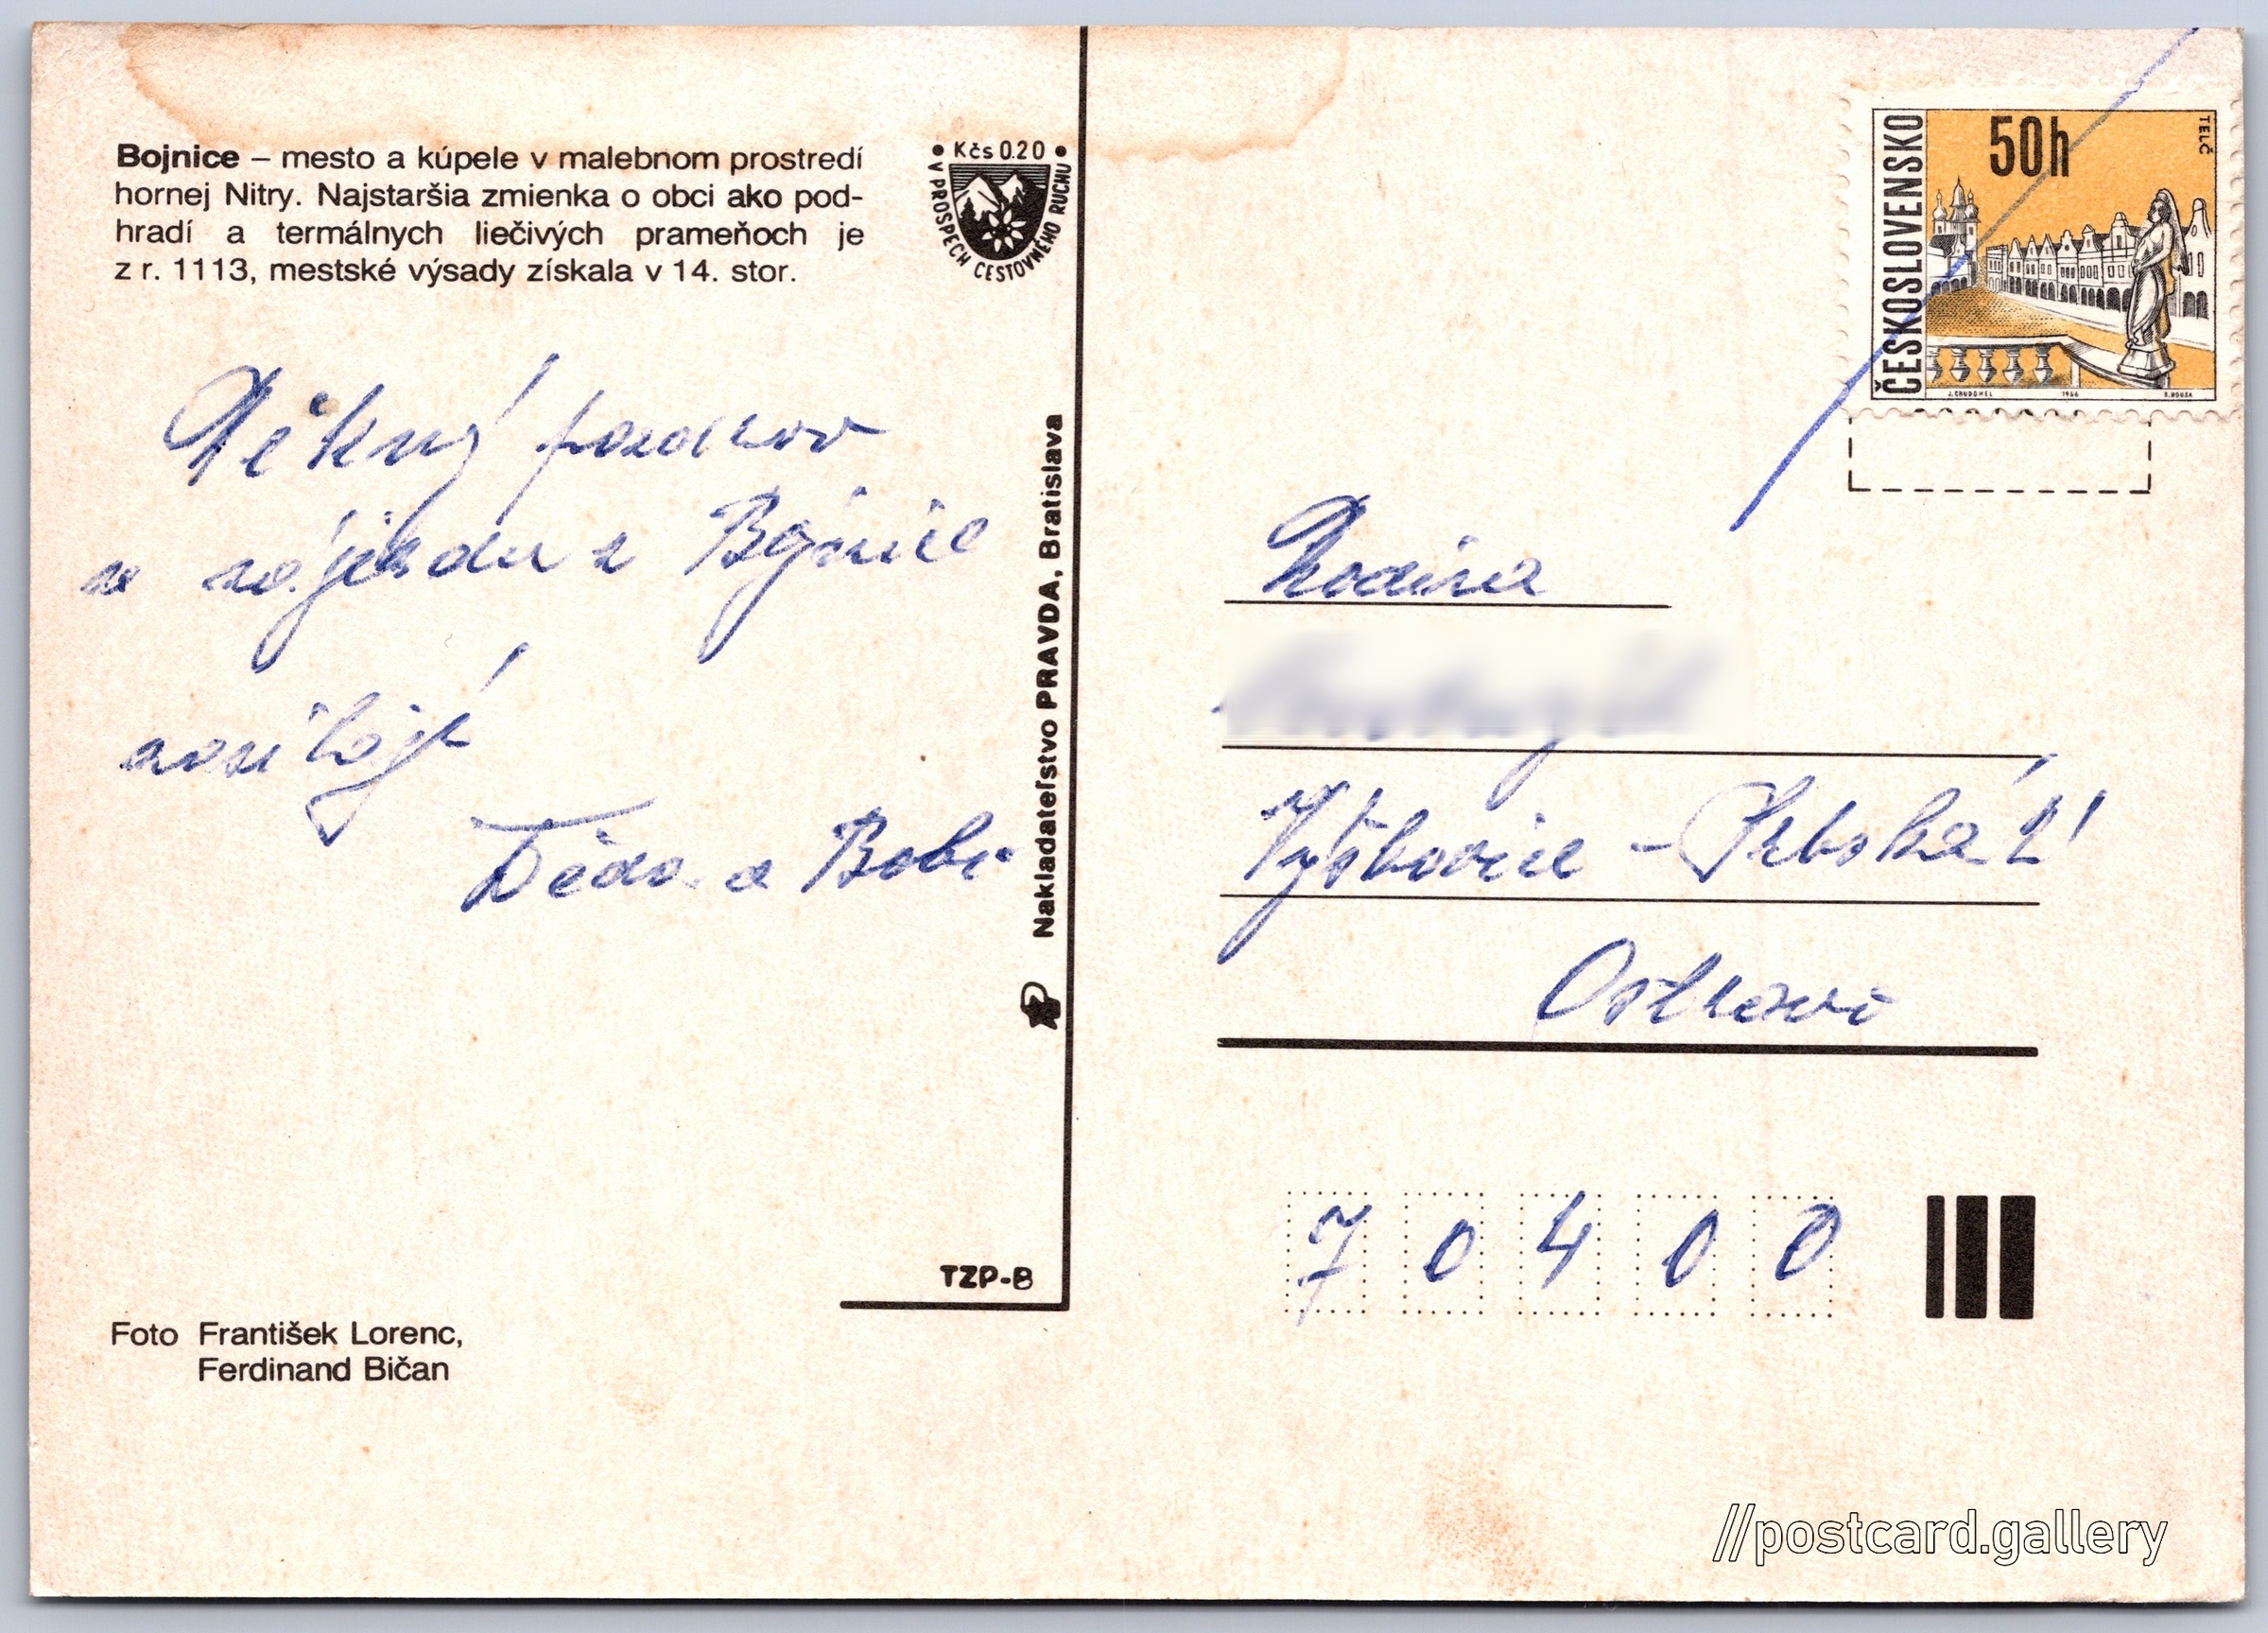 Bojnice – mesto a kúpele v malebnom prostredí
hornej Nitry. Najstaršia zmienka o obci ako pod-
hradí a termálnych liečivých prameňoch je
z r. 1113, mestské výsady získala v 14. stor.
• Kčs 0.20 •
V PROSPECH CESTOVNÉHO RUCHU
Pěkný pozdrav
z Bojnic
Děda a Baba
Nakladateľstvo PRAVDA, Bratislava
TZP-B
Foto František Lorenc,
Ferdinand Bičan
ČESKOSLOVENSKO
50h
TELČ
J. CHUDOMEL 1966
Rodina
Výškovice - Srbská
Ostrava
7 0 4 0 0
//postcard.gallery